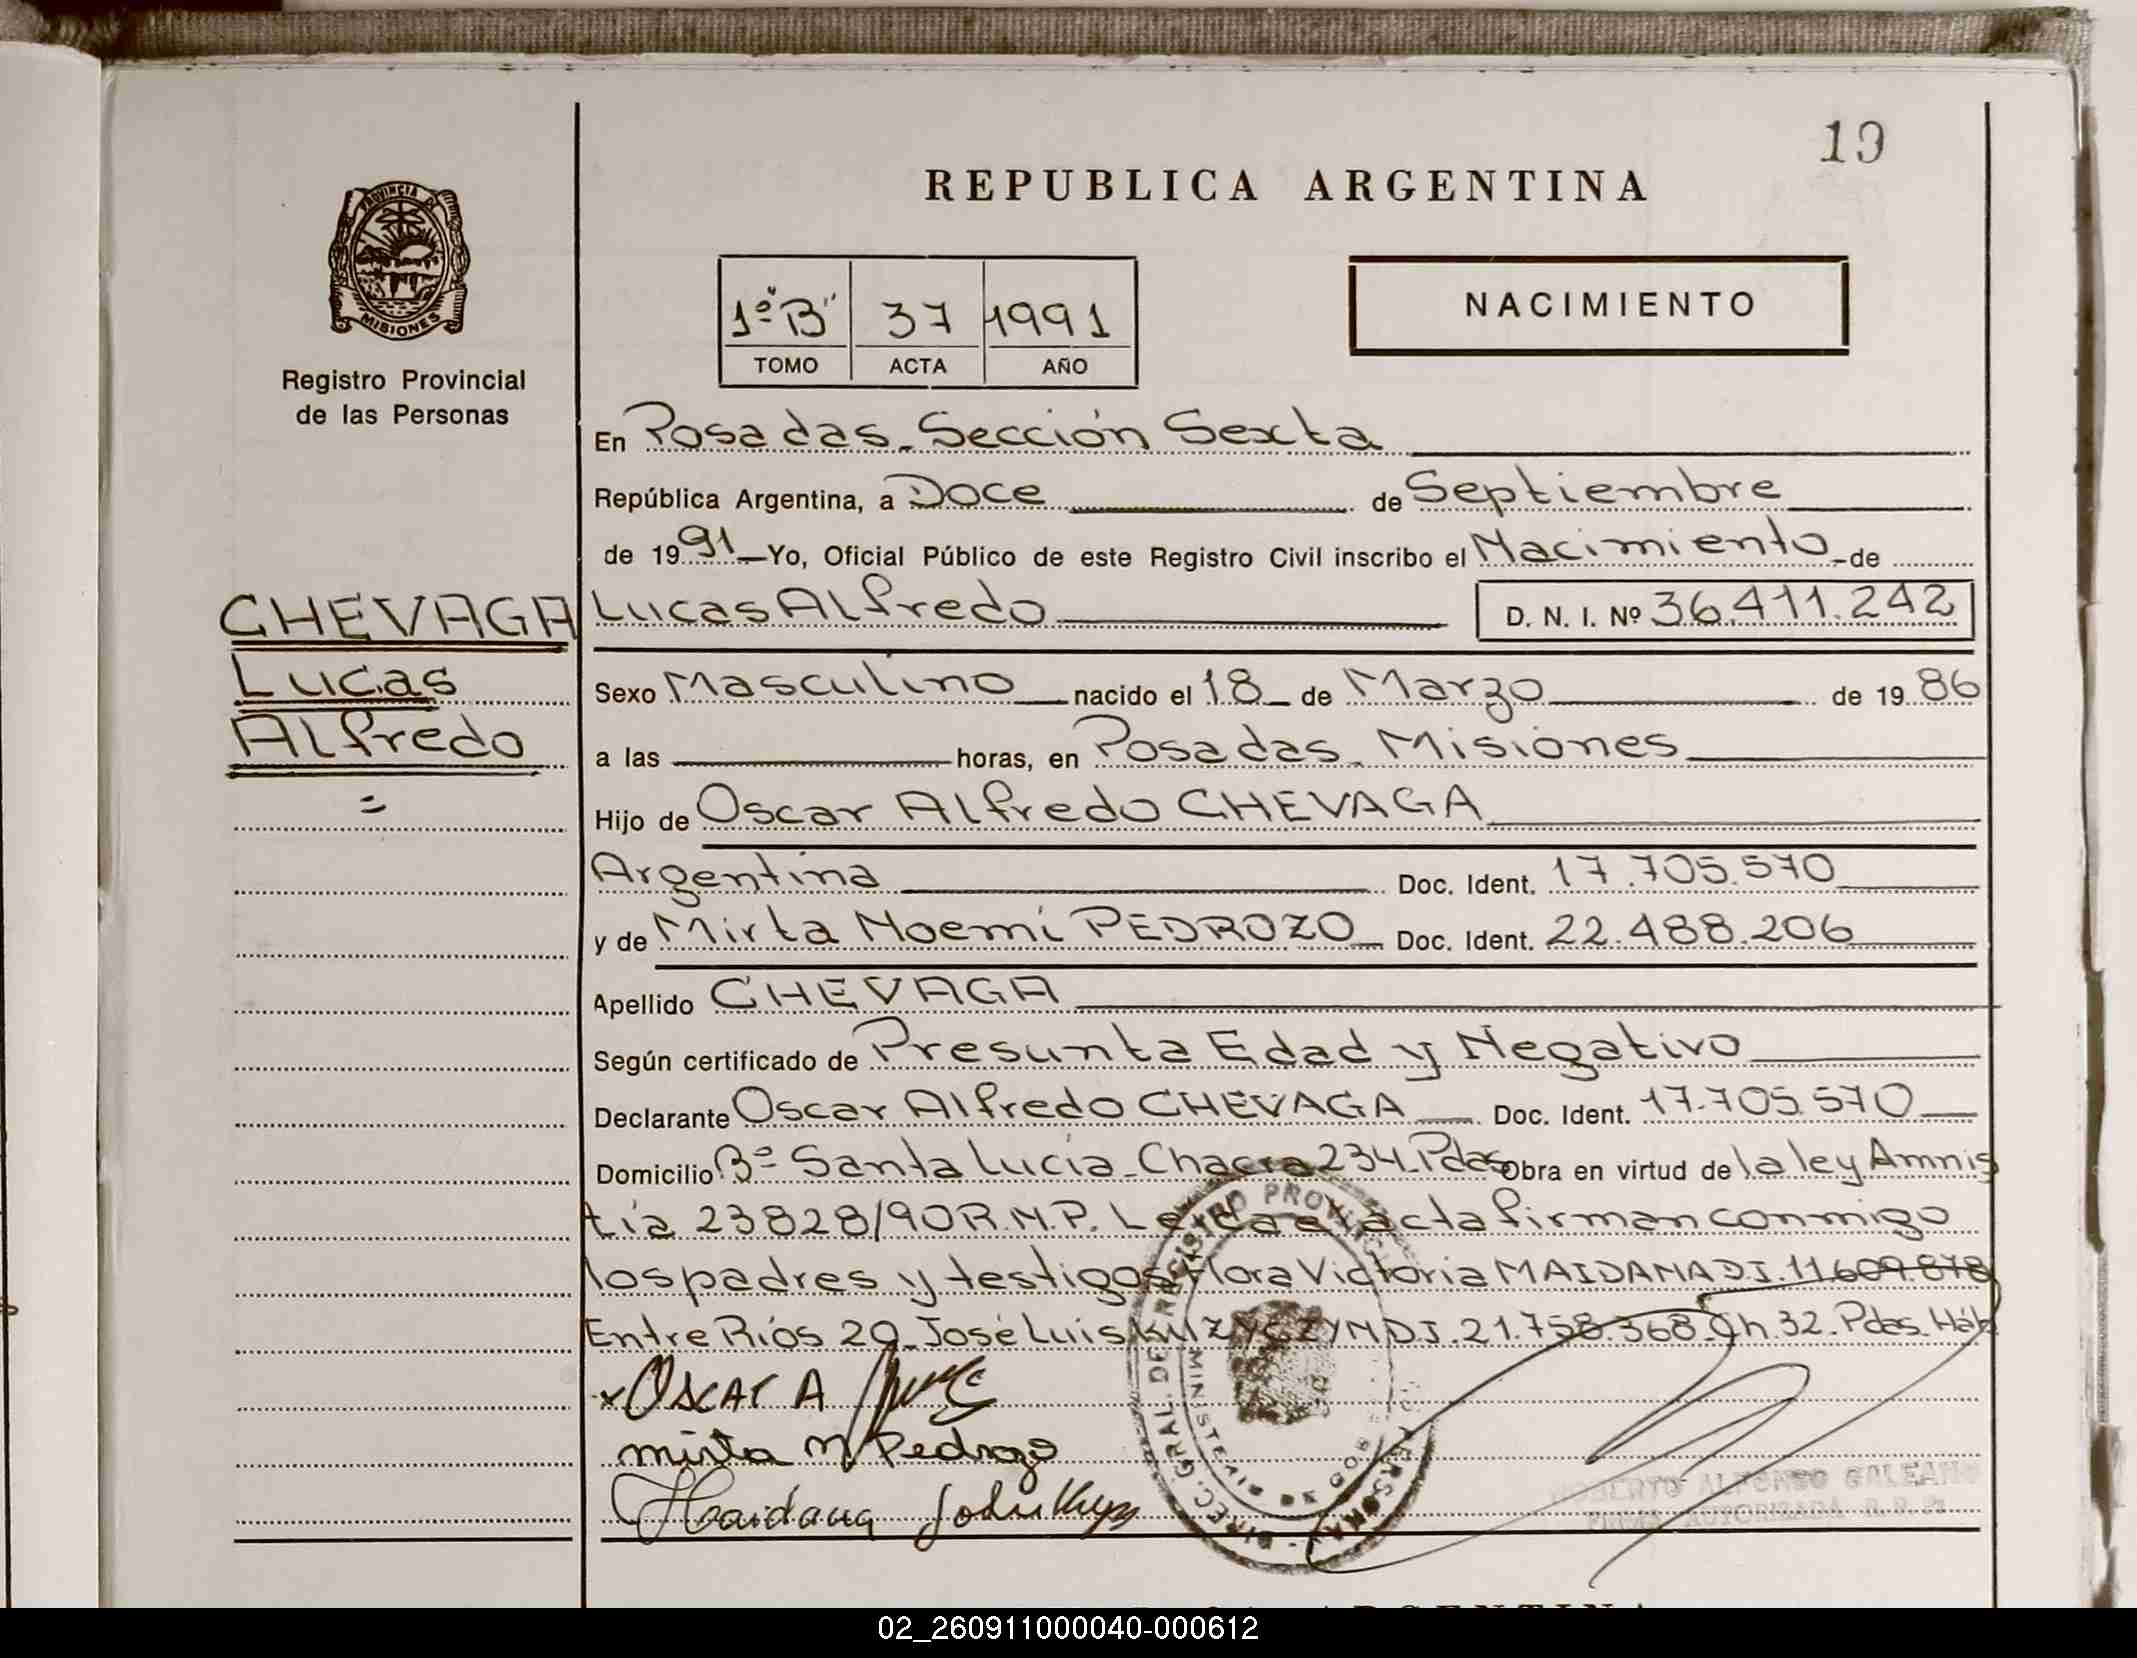 19
REPUBLICA ARGENTINA
PROVINCIA DE
MISIONES
Registro Provincial
de las Personas
1º "B" 37 1991
TOMO ACTA AÑO
NACIMIENTO
En Posadas - Sección Sexta
República Argentina, a Doce de Septiembre
de 1991 - Yo, Oficial Público de este Registro Civil inscribo el Nacimiento - de
CHEVAGA
Lucas
Alfredo
Lucas Alfredo D. N. I. Nº 36.411.242
Sexo Masculino nacido el 18 de Marzo de 1986
a las horas, en Posadas. Misiones
Hijo de Oscar Alfredo CHEVAGA
Argentina Doc. Ident. 17.705.570
y de Mirta Noemí PEDROZO Doc. Ident. 22.488.206
Apellido CHEVAGA
Según certificado de Presunta Edad y Negativo
Declarante Oscar Alfredo CHEVAGA Doc. Ident. 17.705.570
Domicilio Bº Santa Lucía - Chacra 234. Pdas Obra en virtud de la ley Amnis
tía 23828/90 R.N.P. Leída el acta firman conmigo
los padres y testigos Flora Victoria MAIDANA D.I. 11.609.878
Entre Ríos 29 - José Luis D.I. 21.758.368. Ch. 32. Pdas.
Oscar A
mirta N. Pedrozo
Maidana
DIREC. GRAL. DE REGISTRO PROVINCIAL PERSONAS
ROBERTO ALFONSO GALEANO
FIRMA AUTORIZADA
REPUBLICA ARGENTINA
02_260911000040-000612